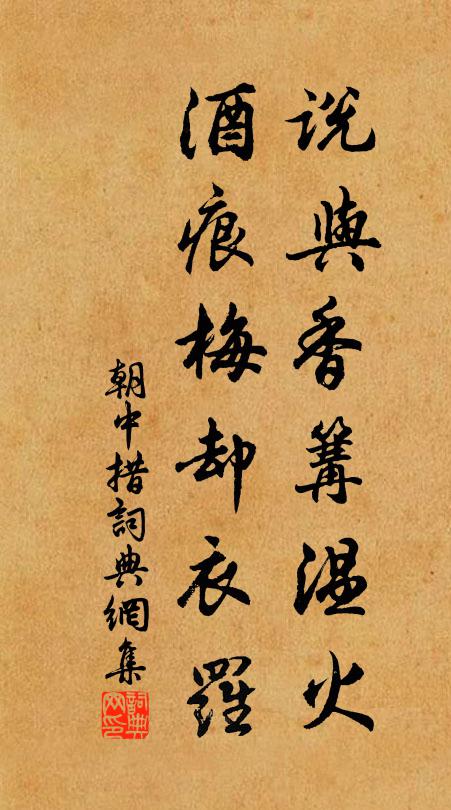 說與香篝温火
酒痕梅却衣羅
朝中措詞典網集
詞典网印